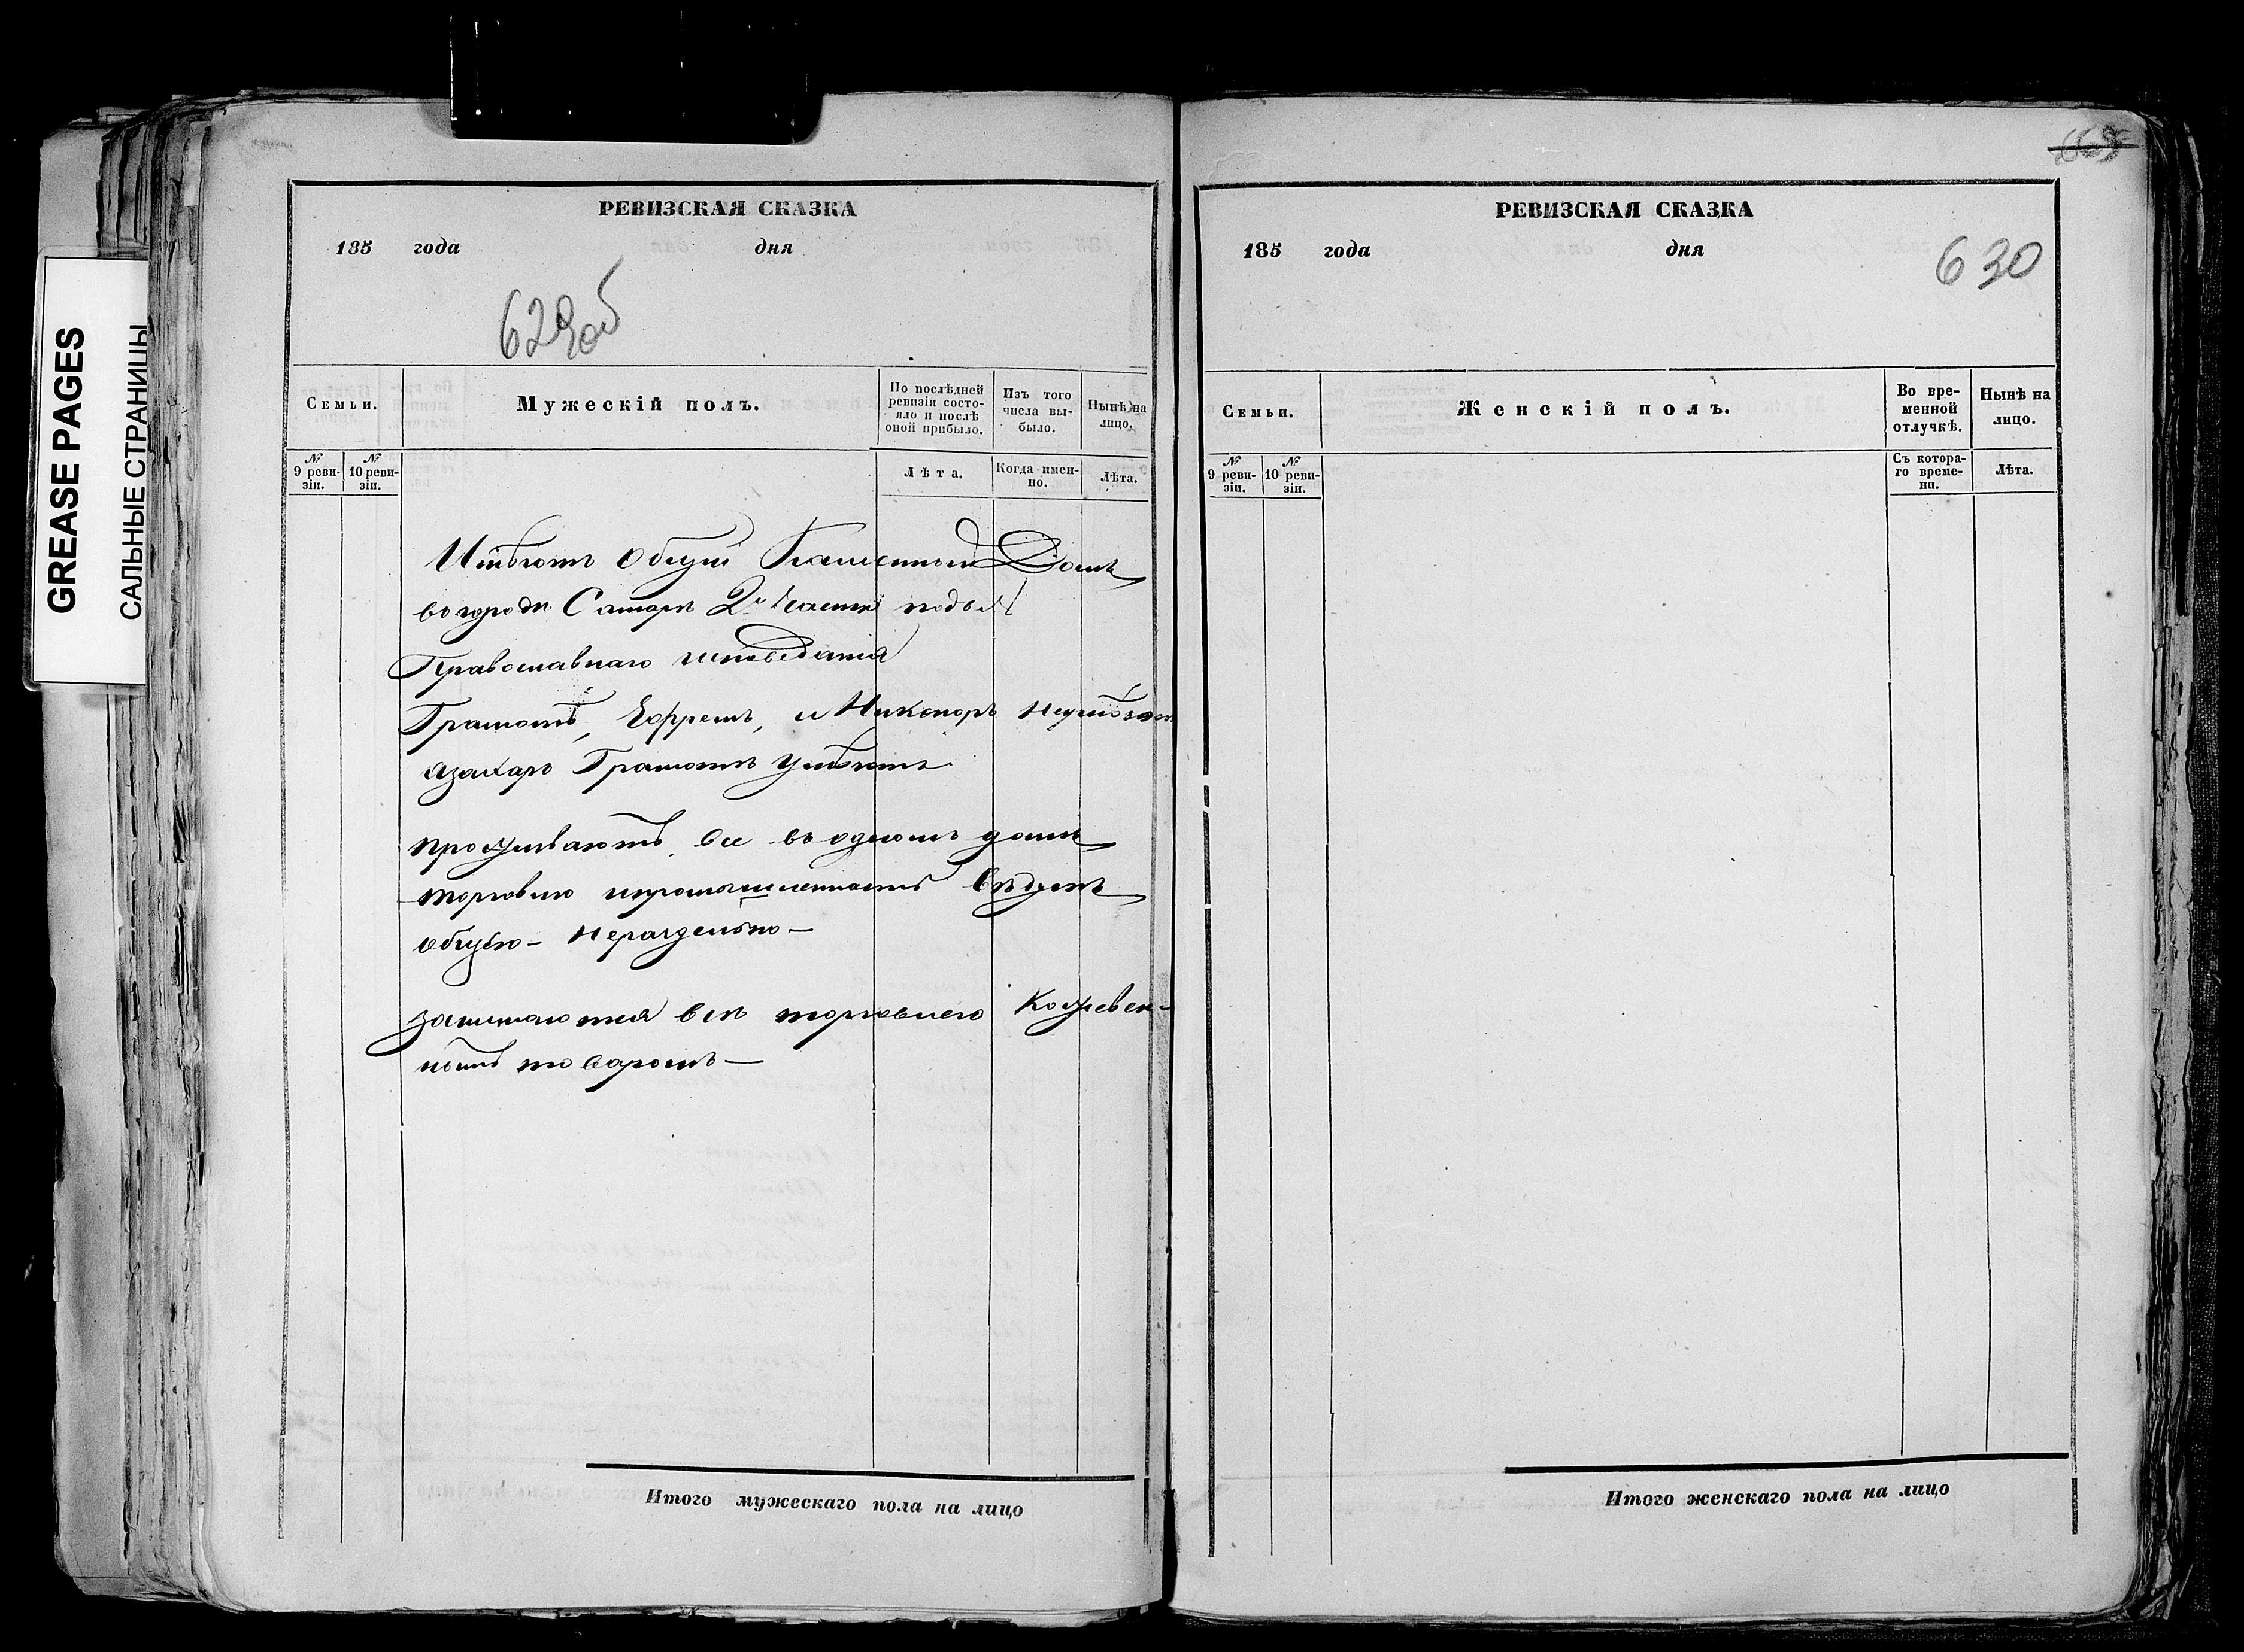 GREASE PAGES
САЛЬНЫЕ СТРАНИЦЫ
РЕВИЗСКАЯ СКАЗКА
185 года дня
629об
Семьи.
Мужескій полъ.
По послѣдней ревизіи состояло и послѣ оной прибыло.
Изъ того числа выбыло.
Нынѣ на лицо.
№ 9 ревизіи.
№ 10 ревизіи.
Лѣта.
Когда именно.
Лѣта.
Имѣютъ Общій Каменный Домъ
въ городѣ Самарѣ 2й части подъ №
Православнаго исповѣданія
Грамотѣ, Ефремъ, и Никоноръ неумѣютъ
а Захаръ Грамотѣ умѣетъ
проживаютъ все въ одномъ домѣ
торговлю и промышленность ведутъ
общую - нераздельно -
занимаются всѣ торговлею Кожевен-
нымъ товаромъ —
РЕВИЗСКАЯ СКАЗКА
185 года дня
630
Семьи.
Женскій полъ.
Во временной отлучкѣ.
Нынѣ на лицо.
№ 9 ревизіи.
№ 10 ревизіи.
Съ котораго времени.
Лѣта.
Итого мужескаго пола на лицо
Итого женскаго пола на лицо